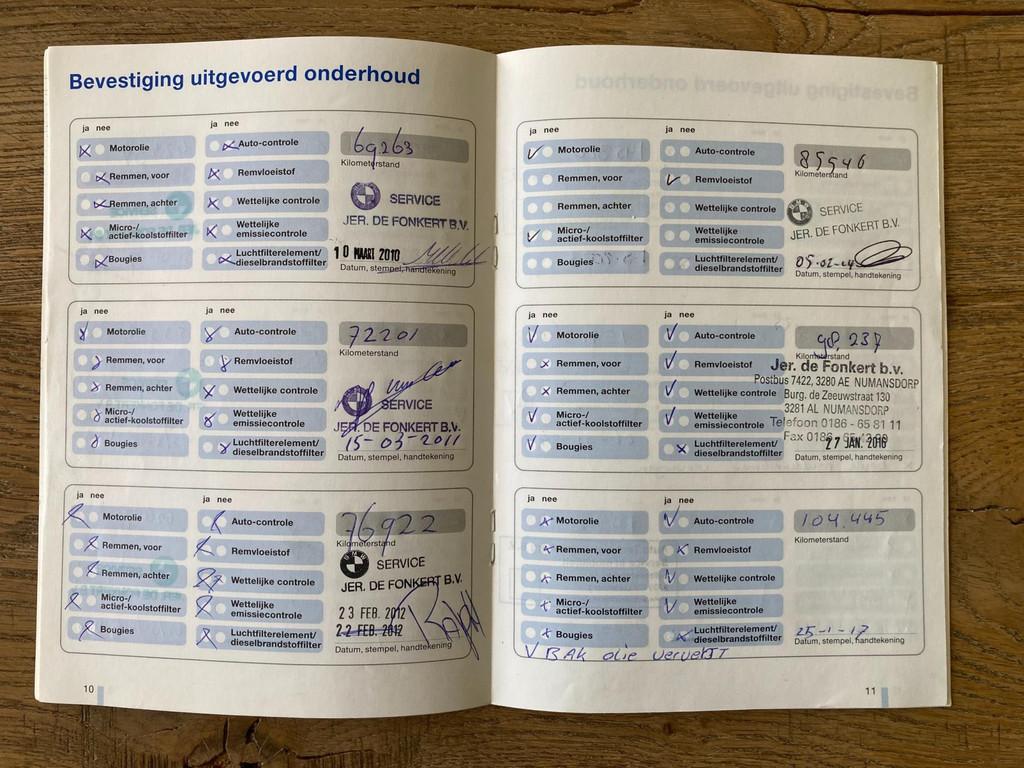 Bevestiging uitgevoerd onderhoud
ja nee
ja nee
Motorolie
Auto-controle
69263
Kilometerstand
Remmen, voor
Remvloeistof
Remmen, achter
Wettelijke controle
SERVICE
JER. DE FONKERT B.V.
Micro-/
actief-koolstoffilter
Wettelijke
emissiecontrole
Bougies
Luchtfilterelement/
dieselbrandstoffilter
10 MAART 2010
Datum, stempel, handtekening
ja nee
ja nee
Motorolie
Auto-controle
72201
Kilometerstand
Remmen, voor
Remvloeistof
Remmen, achter
Wettelijke controle
SERVICE
JER. DE FONKERT B.V.
Micro-/
actief-koolstoffilter
Wettelijke
emissiecontrole
15-03-2011
Bougies
Luchtfilterelement/
dieselbrandstoffilter
Datum, stempel, handtekening
ja nee
ja nee
Motorolie
Auto-controle
76922
Kilometerstand
Remmen, voor
Remvloeistof
BMW
SERVICE
JER. DE FONKERT B.V.
Remmen, achter
Wettelijke controle
Micro-/
actief-koolstoffilter
Wettelijke
emissiecontrole
23 FEB. 2012
22 FEB. 2012
Bougies
Luchtfilterelement/
dieselbrandstoffilter
Datum, stempel, handtekening
10
ja nee
ja nee
Motorolie
Auto-controle
85546
Kilometerstand
Remmen, voor
Remvloeistof
Remmen, achter
Wettelijke controle
SERVICE
JER. DE FONKERT B.V.
Micro-/
actief-koolstoffilter
Wettelijke
emissiecontrole
Bougies
Luchtfilterelement/
dieselbrandstoffilter
05-02-14
Datum, stempel, handtekening
ja nee
ja nee
Motorolie
Auto-controle
98.237
Kilometerstand
Remmen, voor
Remvloeistof
Jer. de Fonkert b.v.
Postbus 7422, 3280 AE NUMANSDORP
Remmen, achter
Wettelijke controle
Burg. de Zeeuwstraat 130
3281 AL NUMANSDORP
Micro-/
actief-koolstoffilter
Wettelijke
emissiecontrole
Telefoon 0186 - 65 81 11
Fax 0186
27 JAN. 2016
Bougies
Luchtfilterelement/
dieselbrandstoffilter
Datum, stempel, handtekening
ja nee
ja nee
Motorolie
Auto-controle
104.445
Kilometerstand
Remmen, voor
Remvloeistof
Remmen, achter
Wettelijke controle
Micro-/
actief-koolstoffilter
Wettelijke
emissiecontrole
Bougies
Luchtfilterelement/
dieselbrandstoffilter
25-1-17
Datum, stempel, handtekening
BAK olie ververst
11